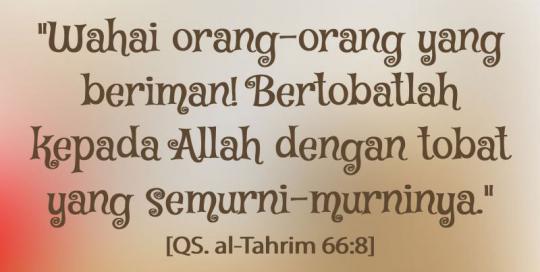 "Wahai orang-orang yang
beriman! Bertobatlah
kepada Allah dengan tobat
yang semurni-murninya."
[QS. al-Tahrim 66:8]